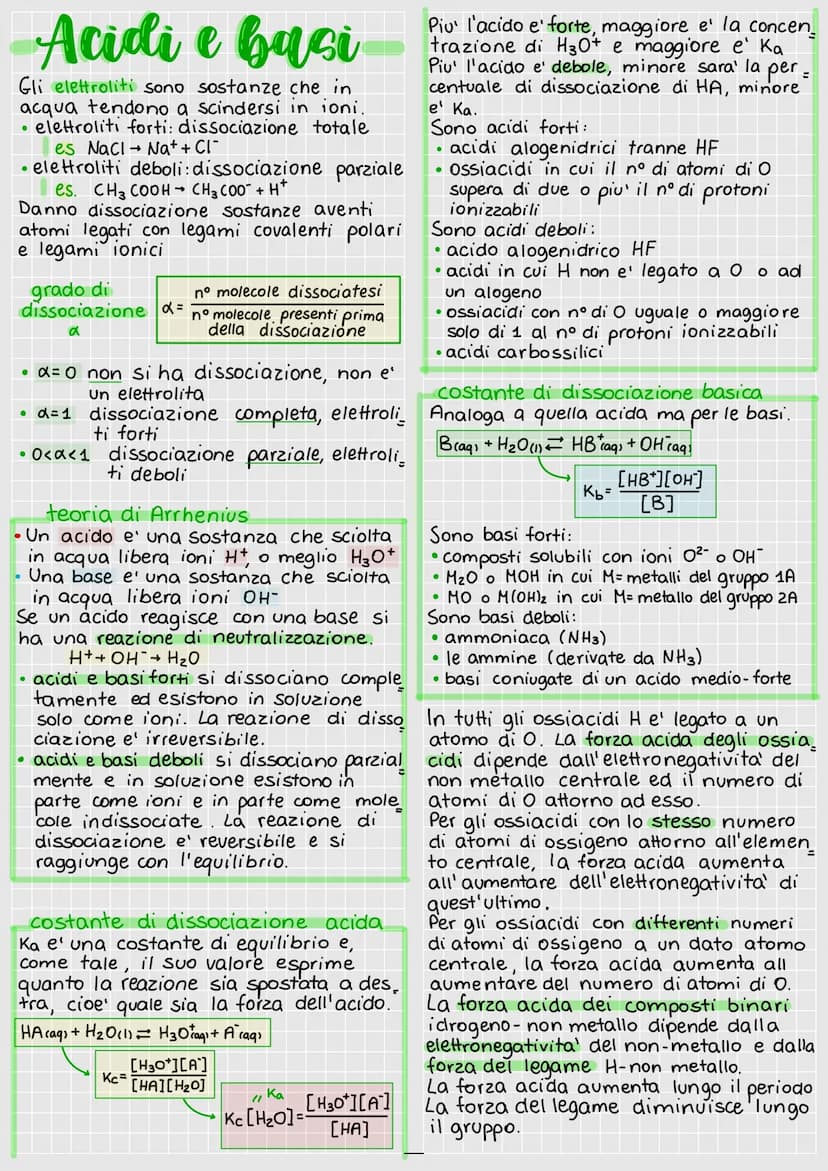 Acidi e basi
Gli elettroliti sono sostanze che in
acqua tendono a scindersi in ioni.
• elettroliti forti: dissociazione totale
es NaCl → Na⁺ + Cl⁻
• elettroliti deboli: dissociazione parziale
es. CH₃COOH → CH₃COO⁻ + H⁺
Danno dissociazione sostanze aventi
atomi legati con legami covalenti polari
e legami ionici
grado di
dissociazione
α
α = nº molecole dissociatesi
nº molecole presenti prima
della dissociazione
• α=0 non si ha dissociazione, non e'
un elettrolita
• α=1 dissociazione completa, elettroli_
ti forti
• 0<α<1 dissociazione parziale, elettroli_
ti deboli
teoria di Arrhenius
• Un acido e' una sostanza che sciolta
in acqua libera ioni H⁺, o meglio H₃O⁺
• Una base e' una sostanza che sciolta
in acqua libera ioni OH⁻
Se un acido reagisce con una base si
ha una reazione di neutralizzazione.
H⁺ + OH⁻ → H₂O
• acidi e basi forti si dissociano comple_
tamente ed esistono in soluzione
solo come ioni. La reazione di disso_
ciazione e' irreversibile.
• acidi e basi deboli si dissociano parzial_
mente e in soluzione esistono in
parte come ioni e in parte come mole_
cole indissociate. La reazione di
dissociazione e' reversibile e si
raggiunge con l'equilibrio.
costante di dissociazione acida
Ka e' una costante di equilibrio e,
come tale, il suo valore esprime
quanto la reazione sia spostata a des_
tra, cioe' quale sia la forza dell'acido.
HA(aq) + H₂O(l) ⇌ H₃O⁺(aq) + A⁻(aq)
Kc = [H₃O⁺][A⁻]
[HA][H₂O]
" Ka
Kc[H₂O] = [H₃O⁺][A⁻]
[HA]
Piu' l'acido e' forte, maggiore e' la concen_
trazione di H₃O⁺ e maggiore e' Ka
Piu' l'acido e' debole, minore sara' la per_
centuale di dissociazione di HA, minore
e' Ka.
Sono acidi forti:
• acidi alogenidrici tranne HF
• ossiacidi in cui il nº di atomi di O
supera di due o piu' il nº di protoni
ionizzabili
Sono acidi deboli:
• acido alogenidrico HF
• acidi in cui H non e' legato a O o ad
un alogeno
• ossiacidi con nº di O uguale o maggiore
solo di 1 al nº di protoni ionizzabili
• acidi carbossilici
costante di dissociazione basica
Analoga a quella acida ma per le basi.
B(aq) + H₂O(l) ⇌ HB⁺(aq) + OH⁻(aq)
Kb = [HB⁺][OH⁻]
[B]
Sono basi forti:
• composti solubili con ioni O²⁻ o OH⁻
• M₂O o MOH in cui M= metalli del gruppo 1A
• MO o M(OH)₂ in cui M= metallo del gruppo 2A
Sono basi deboli:
• ammoniaca (NH₃)
• le ammine (derivate da NH₃)
• basi coniugate di un acido medio-forte
In tutti gli ossiacidi H e' legato a un
atomo di O. La forza acida degli ossia_
cidi dipende dall'elettronegativita' del
non metallo centrale ed il numero di
atomi di O attorno ad esso.
Per gli ossiacidi con lo stesso numero
di atomi di ossigeno attorno all'elemen_
to centrale, la forza acida aumenta
all'aumentare dell'elettronegativita' di
quest'ultimo.
Per gli ossiacidi con differenti numeri
di atomi di ossigeno a un dato atomo
centrale, la forza acida aumenta all
aumentare del numero di atomi di O.
La forza acida dei composti binari
idrogeno-non metallo dipende dalla
elettronegativita' del non-metallo e dalla
forza del legame H-non metallo.
La forza acida aumenta lungo il periodo
La forza del legame diminuisce lungo
il gruppo.